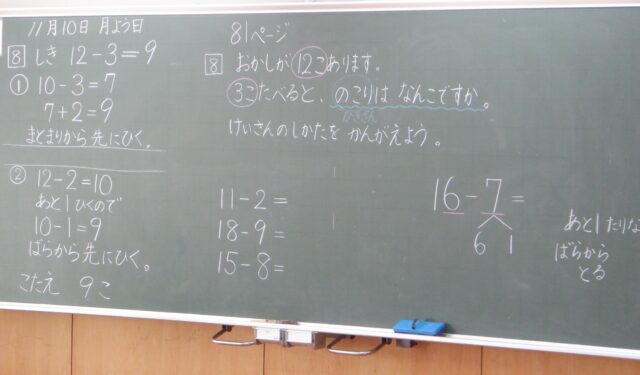 11月10日 月よう日
8 しき 12-3=9
① 10-3=7
7+2=9
まとまりから先にひく。
② 12-2=10
あと1ひくので
10-1=9
ばらから先にひく。
こたえ 9こ
81ページ
8 おかしが12こあります。
3こたべると、のこりは なんこですか。
ひきざん
けいさんのしかたを かんがえよう。
11-2=
18-9=
15-8=
16-7=
6 1
あと1たりな
ばらから
とる